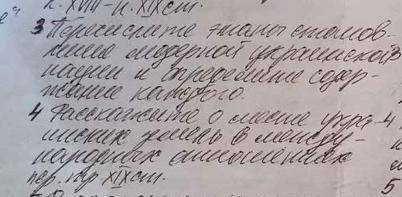 к. XVIII - н. XIX ст.
3 Перечислите этапы станов-
ление модерной украинской
нации и определение содер-
жание каждого.
4 Расскажите о месте укра-
инских земель в между-
народных отношениях
пер. пол. XIX ст.
3
4
5